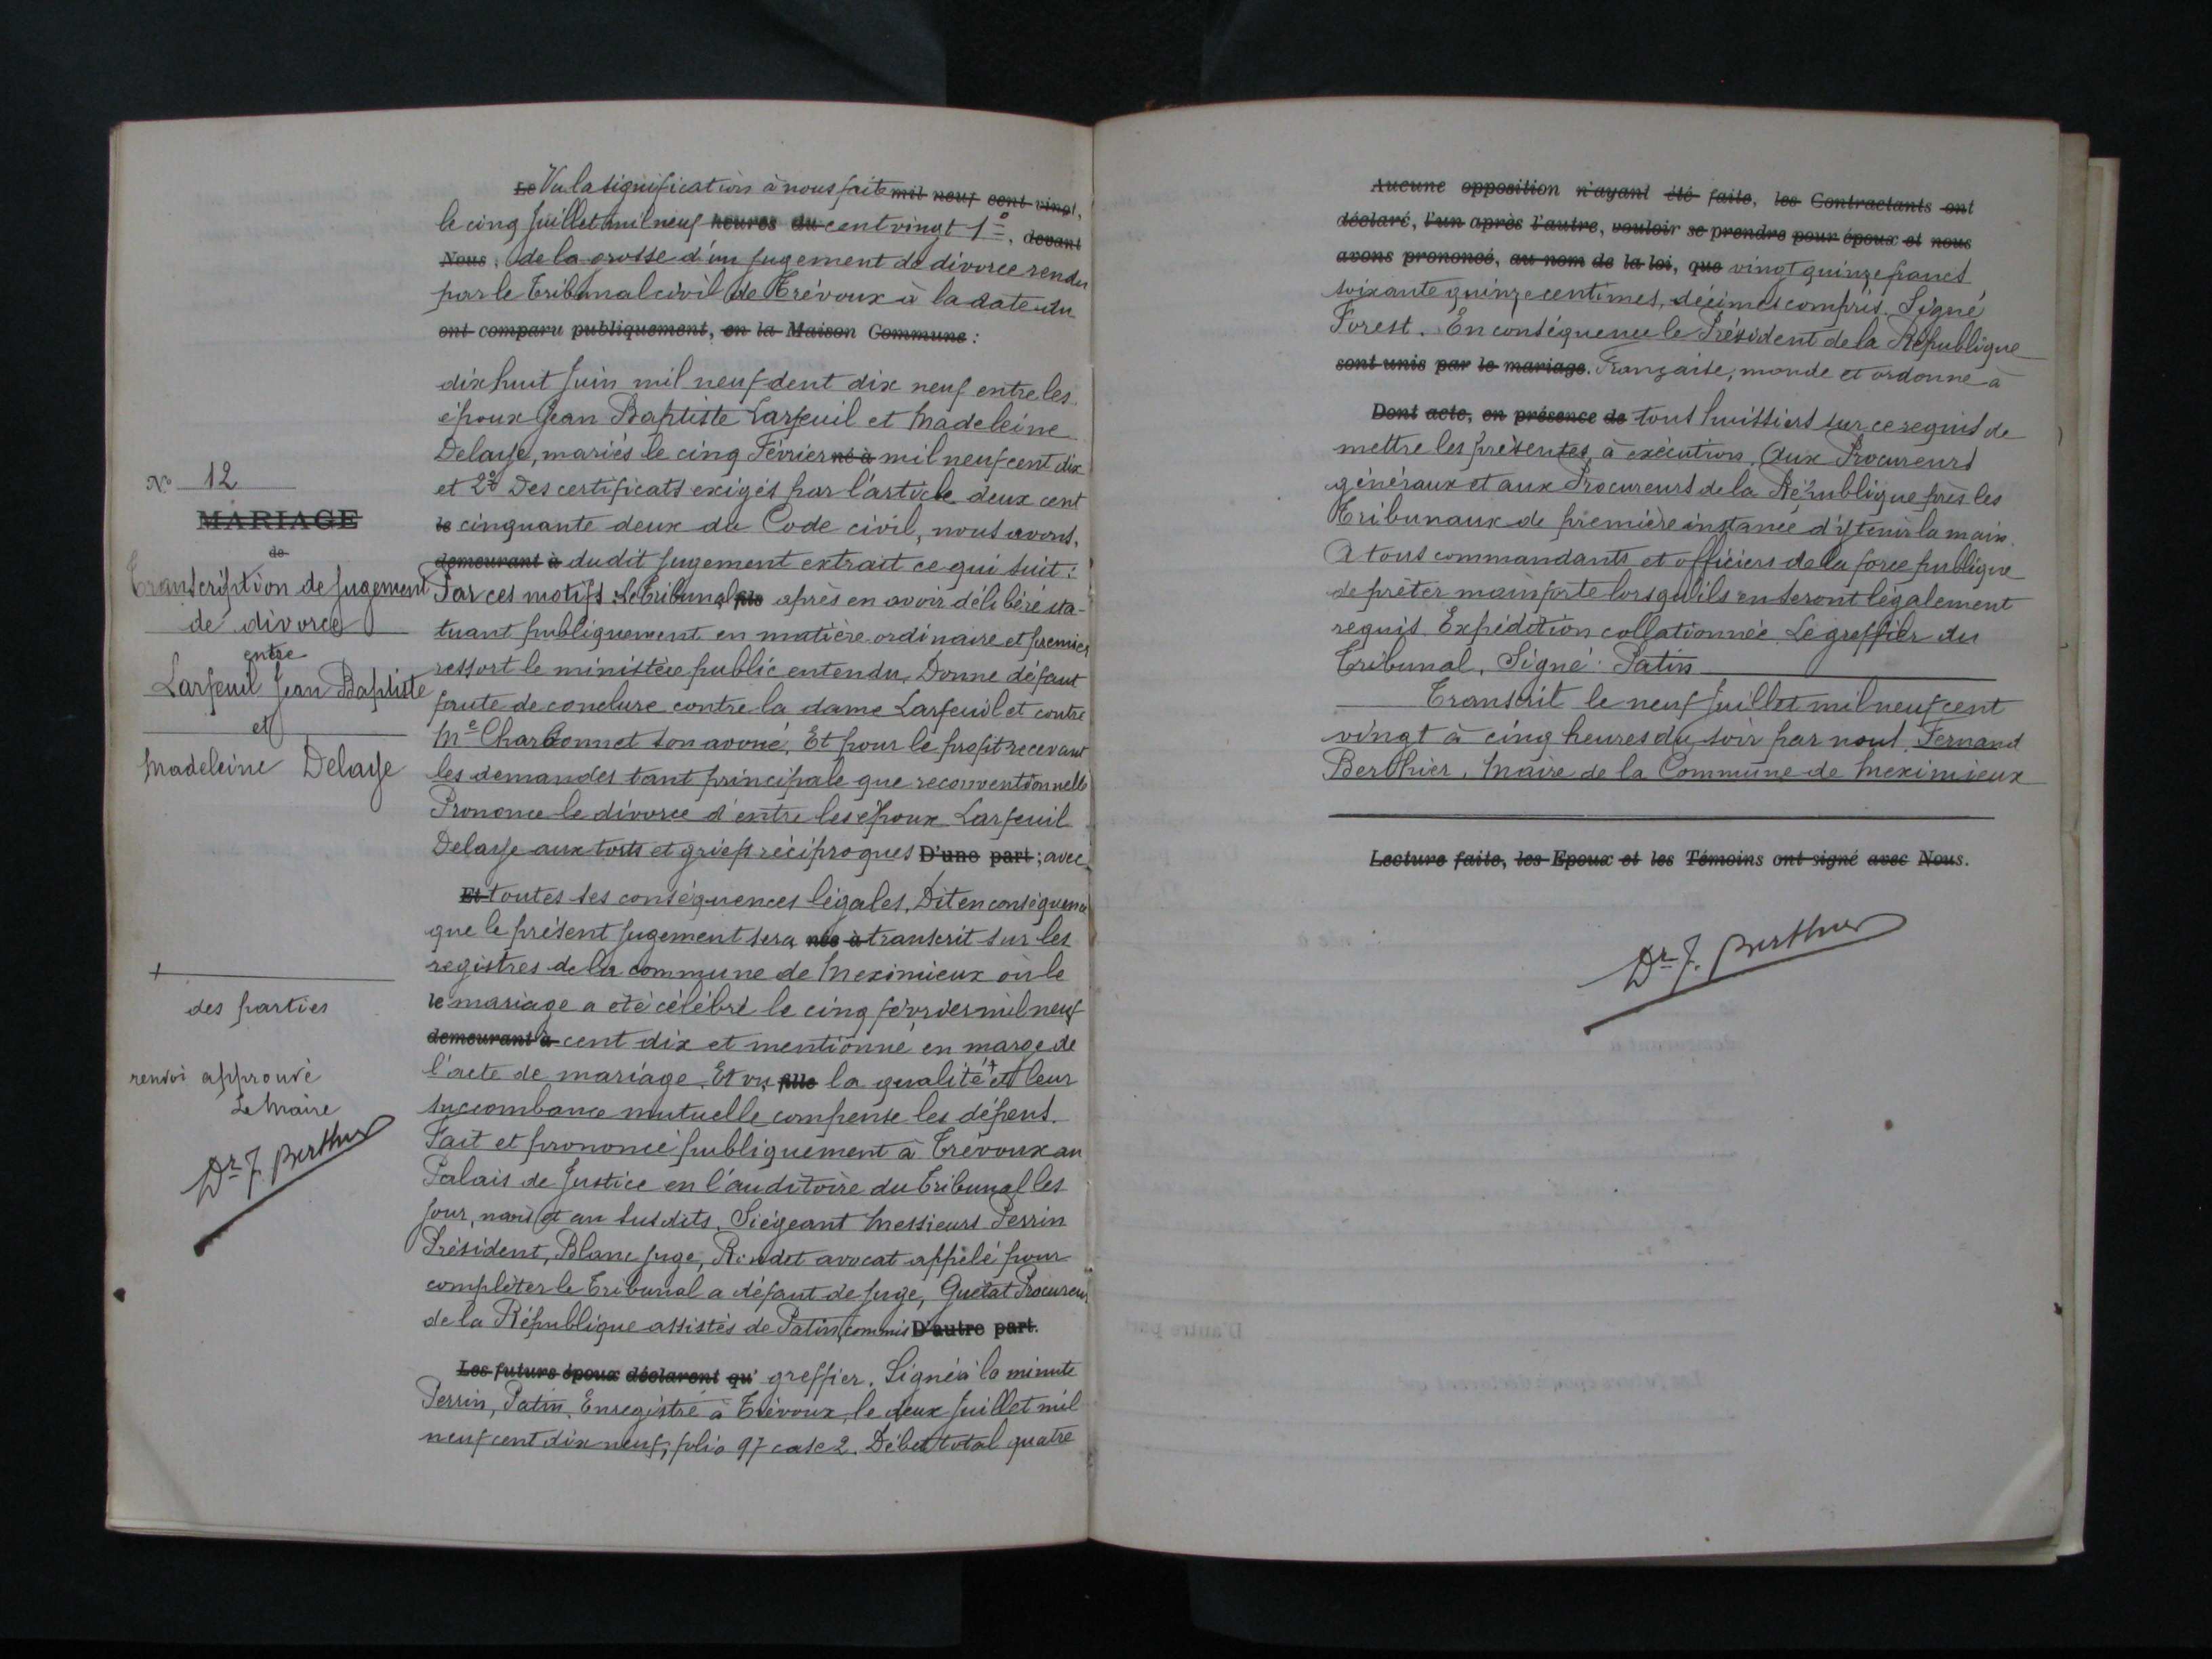 N° 12
MARIAGE
de
Transcription de jugement
de divorce
entre
Larfeuil Jean Baptiste
et
Madeleine Delaye
+
des parties
renvoi approuvé
Le Maire
Dr F. Berthier
Le Vu la signification à nous faite mil neuf cent vingt,
le cinq Juillet mil neuf heures du cent vingt 1°, devant
Nous, de la grosse d'un jugement de divorce rendu
par le Tribunal civil de Trévoux à la date du
ont comparu publiquement, en la Maison Commune :
dix huit Juin mil neuf cent dix neuf entre les
époux Jean Baptiste Larfeuil et Madeleine
Delaye, mariés le cinq Février né à mil neuf cent dix
et 2° Des certificats exigés par l'article deux cent
le cinquante deux du Code civil, nous avons,
demeurant à dudit jugement extrait ce qui suit :
Par ces motifs : Le Tribunal fils après en avoir délibéré sta-
tuant publiquement en matière ordinaire et premier
ressort le ministère public entendu, Donne défaut
faute de conclure contre la dame Larfeuil et contre
Me Charbonnet son avoué, Et pour le profit recevant
les demandes tant principale que reconventionnelle
Prononce le divorce d'entre les époux Larfeuil
Delaye aux torts et griefs réciproques D'une part ; avec
Et toutes ses conséquences légales, Dit en conséquence
que le présent jugement sera née à transcrit sur les
registres de la commune de Meximieux où le
le mariage a été célébré le cinq février mil neuf
demeurant à cent dix et mentionné en marge de
l'acte de mariage, Et vu fille la qualité + et leur
succombance mutuelle compense les dépens.
Fait et prononcé publiquement à Trévoux au
Palais de Justice en l'auditoire du Tribunal les
jour, mois et an susdits, Siégeant Messieurs Perrin
Président, Blanc juge, Rondet avocat appelé pour
compléter le Tribunal a défaut de juge, Guétat Procureur
de la République assistés de Patin, commis D'autre part.
Les futurs époux déclarent qu' greffier. Signé à la minute
Perrin, Patin. Enregistré à Trévoux, le deux Juillet mil
neuf cent dix neuf, folio 97 case 2. Débet total quatre
Aucune opposition n'ayant été faite, les Contractants ont
déclaré, l'un après l'autre, vouloir se prendre pour époux et nous
avons prononcé, au nom de la loi, que vingt quinze francs
soixante quinze centimes, décimes compris. Signé
Forest. En conséquence le Président de la République
sont unis par le mariage. Française, mande et ordonne à
Dont acte, en présence de tous huissiers sur ce requis de
mettre les présentes à exécution, Aux Procureurs
généraux et aux Procureurs de la République près les
Tribunaux de première instance d'y tenir la main.
A tous commandants et officiers de la force publique
de prêter main forte lorsqu'ils en seront légalement
requis. Expédition collationnée. Le greffier du
Tribunal, Signé : Patin
Transcrit le neuf Juillet mil neuf cent
vingt à cinq heures du soir par nous Fernand
Berthier, Maire de la Commune de Meximieux
Lecture faite, les Epoux et les Témoins ont signé avec Nous.
Dr F. Berthier